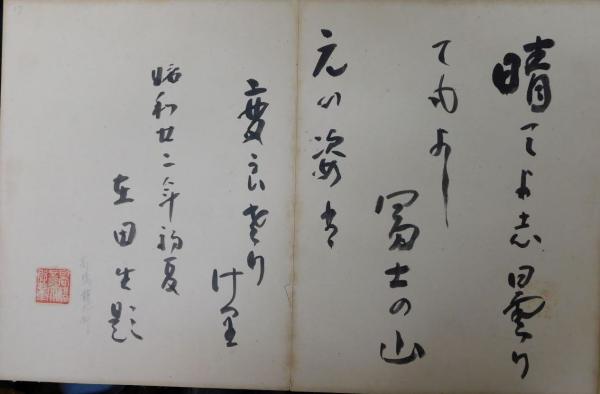 晴てよ志曇り
てもよし
冨士の山
元の姿は
変らさり
け里
昭和廿二年初夏
田生題